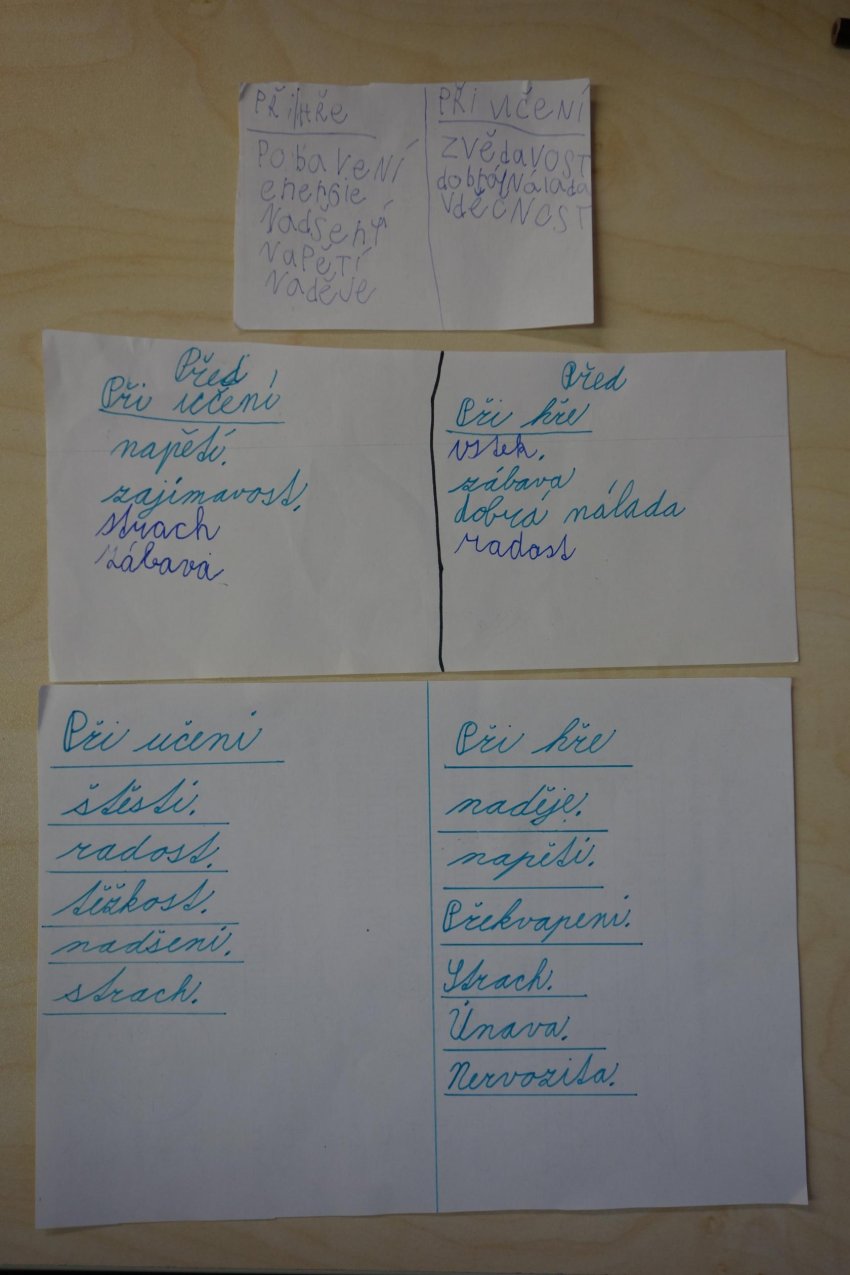 PŘi HŘe
PobaVeNÍ
eneRgie
NadšeNÍ
NaPĚTÍ
NaděJe
PŘi učeNÍ
ZVědaVOST
dobRá Nálada
VděČNOST
Před
Při učení
napětí.
zajímavost.
strach
zábava
Před
Při hře
vstek.
zábava
dobrá nálada
radost
Při učeni
štěstí.
radost.
těžkost.
nadšeni.
strach.
Při hře
naděje.
napěti.
Překvapeni.
Strach.
Únava.
Nervozita.